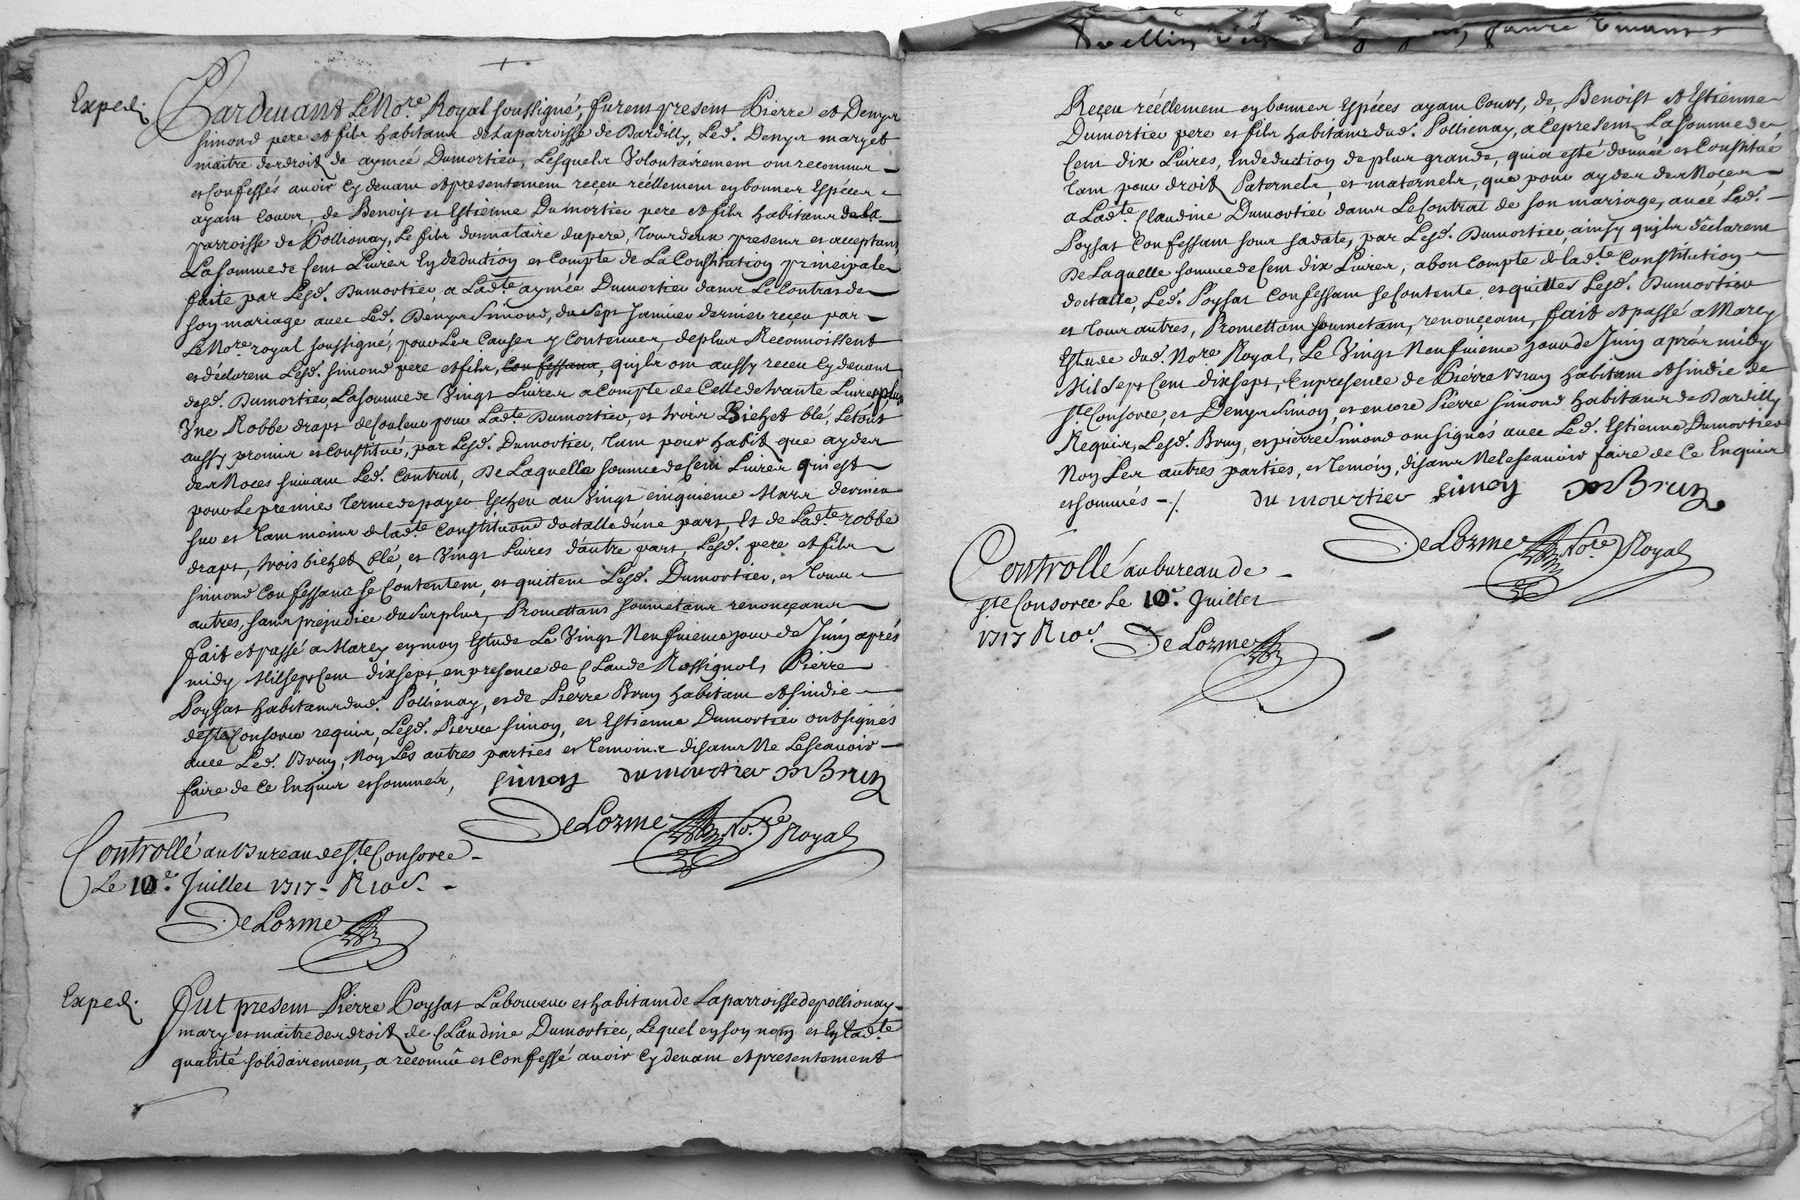 Exped.
Pardevant Le No.re Royal soussigné, furent present Pierre et Denys
Simond pere et fils habitans de Laparroisse de Dardilly, Led. Denys mary et
maitre des droits de aymée Dumortier, Lesquels Volontairement ont reconnus
et Confessés avoir Cy devant et presentement reçeu réellement en bonnes Espéces
ayant Cours, de Benoist et Estienne Dumortier pere et fils habitans de La
parroisse de Pollionay, Le fils donnataire du pere, tous deux presens et acceptans
La somme de Cent Livres En deduction et Compte de La Constitution principale
faite par Lesd. Dumortier, a Lad.te aymée Dumortier dans Le Contrat de
son mariage avec Led. Denys Simond, du sept Janvier dernier reçeu par
Le No.re royal soussigné, pour Les Causes y Contenues, de plus Reconnoissent
et déclarent Lesd. Simond pere et fils, Confessans, qu'ils ont aussy receu Cy devant
desd. Dumortier, La somme de Vingt Livres a Compte de Celle de trante Livres plus
Vne Robbe draps de Couleur pour Lad.te Dumortier, et trois Bichet blé, Le tout
aussy promis et Constitué, par Lesd. Dumortier, tant pour habits que ayder
des Noces suivant Led. Contrat, De Laquelle somme de Cent Livres qui est
pour Le premier terme de payer Escheu au Vingt cinquieme Mars dernier
sur et tant moins de lad.te Constitution dotalle d'une part, Et de Lad.te robbe
draps, trois bichets blé, et Vingt Livres d'autre part, Lesd. pere et fils
Simond Confessans se Contentent, et quittent Lesd. Dumortier, et tous
autres, sans préjudice du surplus, Promettans soumettans renonçeans
fait et passé a Marcy en mon Estude Le Vingt Neufuieme jour de Juin aprés
midy Mil sept Cent dix sept, en presence de Claude Rossignol, Pierre
Poysat habitans dud. Pollienay, et de Piérre Brun habitant et sindic
de Ste Consorce requis, Lesd. Pierre Simon, et Estienne Dumortier ont signés
avec Led. Brun, Non Les autres parties et temoins disans Ne Lescavoir
faire de Ce Enquis et sommés, simon dumourtier Brun
DeLorme No.re Royal
Controllé au Bureau de Ste Consorce
Le 10e. Juillet 1717 - R 10 s.
DeLorme
Exped.
Fut present Piérre Poysat Laboureur et habitant de Laparroisse de pollionay
mary et maitre des droits de Claudine Dumortier, Lequel en son nom et En Lad.te
qualité solidairement, a reconnû et Confessé avoir Cy devant et presentement
Reçeu réellement en bonnes Espéces ayant Cours, de Benoist et Estienne
Dumortier pere et fils habitans dud. Pollienay, a Ce present La somme de
Cent dix Livres, En deduction de plus grande, qui a esté donnée et Constitué
tant pour droits Paternels, et maternels, que pour ayder des Noces
a Lad.te Claudine Dumortier dans Le Contrat de son mariage, avec Led.
Poysat Confessant sous sa date, par Lesd. Dumortier, ainsy qu'ils déclarent
De Laquelle somme de Cent dix Livres, a bon Compte de lad.te Constitution
dotalle, Led. Poysat Confessant se Contente, et quitte Lesd. Dumortier
et tous autres, Promettant soumettant, renonçeant, fait et passé a Marcy
Estude dud. No.re Royal, Le Vingt Neufuieme jour de Juin aprés midy
Mil sept Cent dix sept, En presence de Piérre Brun habitant et sindic de
Ste Consorce, et Denys Simon, et encore Pierre Simond habitans de Dardilly
Requis, Lesd. Brun, et pierre Simond ont signés avec Led. Estienne Dumortier
Non Les autres parties, et temoin, disans Ne Lescavoir faire de Ce Enquis
et sommés -/. du mourtier simon Brun
DeLorme No.re Royal
Controllé au bureau de
Ste Consorce Le 10e. Juillet
1717 R 10 s. DeLorme